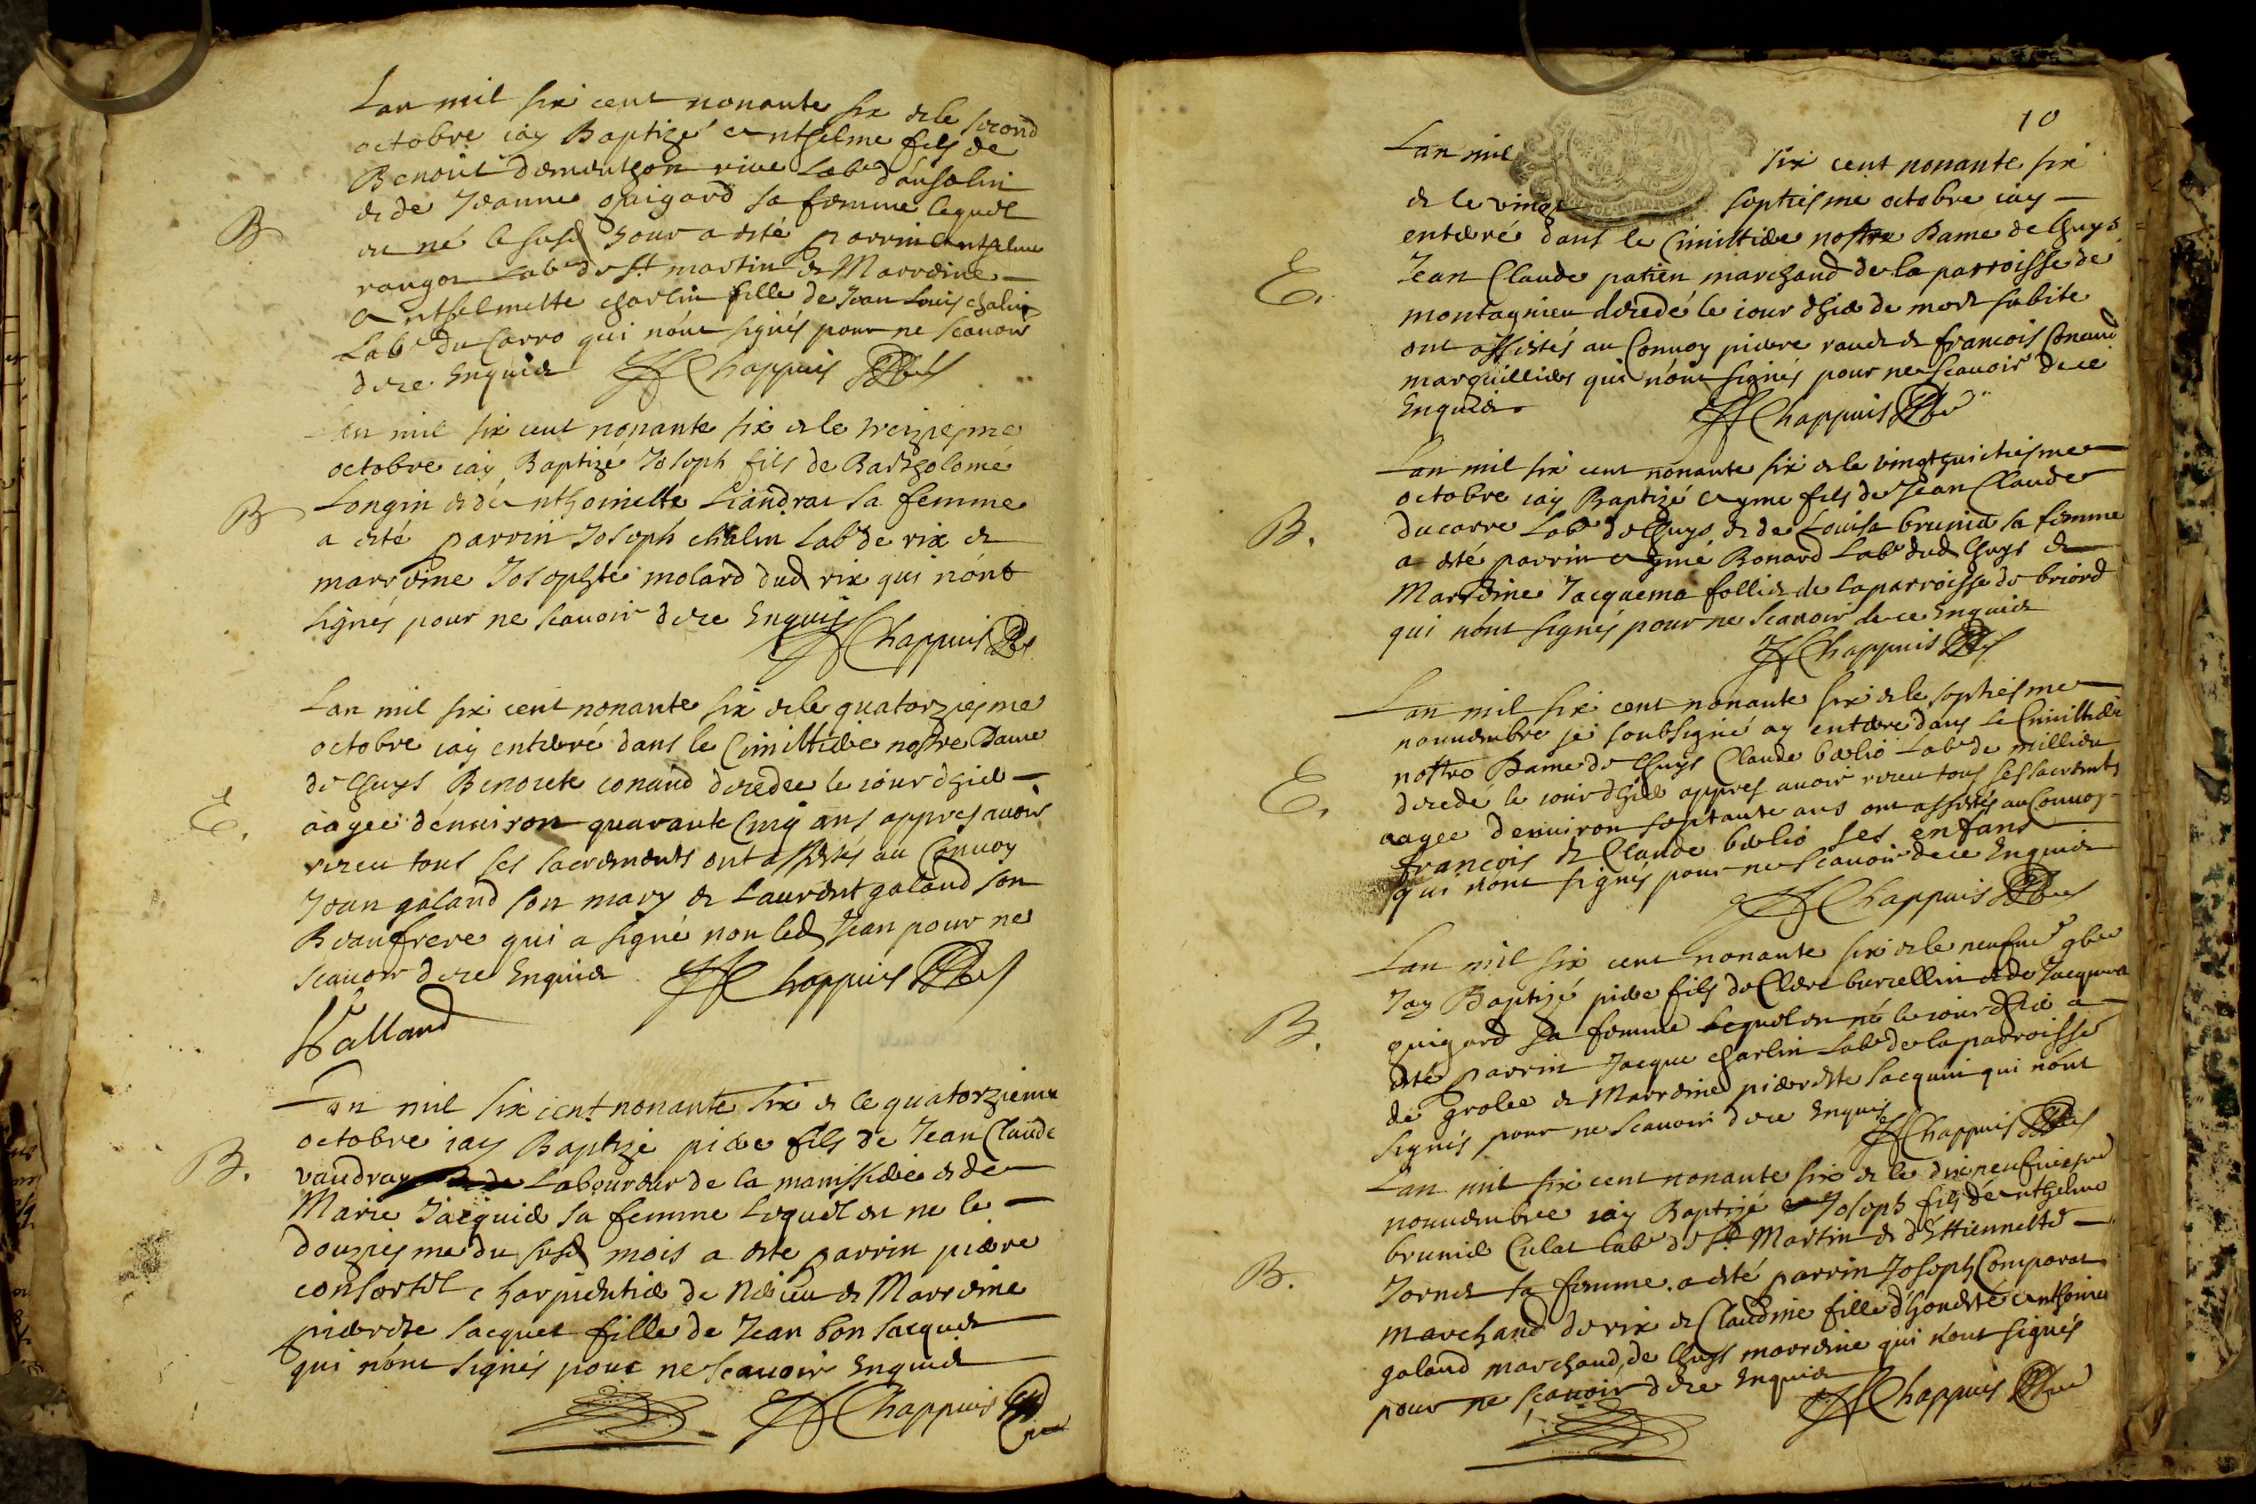 Lan mil six cent nonante six & le second
octobre iay Baptizé Antselme fils de
Benoit labr
& de Jeanne guigard sa femme lequel
est né le susd jour a esté parrin Antselme
rangon labr de St martin & Marreine
Antselmette charlin fille de Jean Louis chalin
Labr du Carro qui nónt signés pour ne scauoir
de ce Enquis J Chappuis
B
Lan mil six cent nonante six & le treiziesme
octobre iay Baptizé Joseph fils de Bartholomé
Longin & dAnthoinette Liandrat sa femme
a esté parrin Joseph chalin labr de rix &
marreine Josephte molard dud rix qui nónt
signés pour ne scauoir de ce Enquis
J Chappuis
B
Lan mil six cent nonante six & le quatorziesme
octobre iay enterré dans le Cimittiere nostre Dame
de lhuys Benoiete conand decedee le iour dhier
aagee dénuiron quarante Cinq ans appres auoir
receu tous ses sacrements ont assistés au Conuoy
Jean galand son mary & Laurent galand son
Beaufrere qui a signé non led Jean pour ne
scauoir de ce Enquis J Chappuis
E.
Galland
Lan mil six cent nonante six & le quatorzieme
octobre iay Baptizé pierre fils de Jean Claude
vaudray Laboureur de la manissiere & de
Marie Jacquier sa femme Lequel est ne le
douziesme du susd mois a este parrin pierre
consortet charpentier de & Marreine
pierrette Jacquet fille de Jean bon Jacquet
qui nónt signés pour ne Scauoir Enquis
J Chappuis Curé
B.
10
Lan mil six cent nonante six
& le vingt septiesme octobre iay
enterré dans le Cimittiere nostre Dame de lhuys
Jean Claude patien marchand de la parroisse de
montagnieu decedé le iour dhier de mort subite
ont assistés au Conuoy pierre & francois Conand
marguilliers qui nónt signés pour ne Scauoir de ce
Enquis J Chappuis
E.
Lan mil six cent nonante six & le vingthuictiesme
octobre iay Baptizé Ayme fils de Jean Claude
ducarre Labr de lhuys & de Louise brunier sa femme
a esté parrin Aymé Bonard Labr dud lhuys &
Marreine Jacquema follier de la parroisse de briord
qui nónt signés pour ne Scauoir de ce Enquis
J Chappuis
B.
Lan mil six cent nonante six & le septiesme
nouuembre je soubsigné ay enterre dans le Cimittiere
nostre Dame de lhuys Claude labr de millieu
decedé le iour dhier appres auoir receu tous ses sacrements
aagee denuiron septante ans ont assistés au Conuoy
francois & Claude ses enfans
qui nónt signés pour ne Scauoir de ce Enquis
J Chappuis
E.
Lan mil six cent nonante six & le neufme 9bre
Jay Baptizé pierre fils de Clere burcellin & de Jacquema
guigard sa femme lequel est né le iour dhier a
esté parrin Jacque charlin labr de la parroisse
de grolee & Marreine pierrette Jacquin qui nónt
signés pour ne Scauoir de ce Enquis
J Chappuis
B.
Lan mil six cent nonante six & le dixneufuiesme
nouuembre iay Baptizé Joseph fils dAnthelme
brunier Culat labr de St Martin & dEttiennette
Jornet sa femme. a esté parrin Joseph Comparat
marchand de rix & Claudine fille dhoneste Anthoine
galand marchand de lhuys marreine qui nónt signés
pour ne Scauoir de ce Enquis J Chappuis
B.